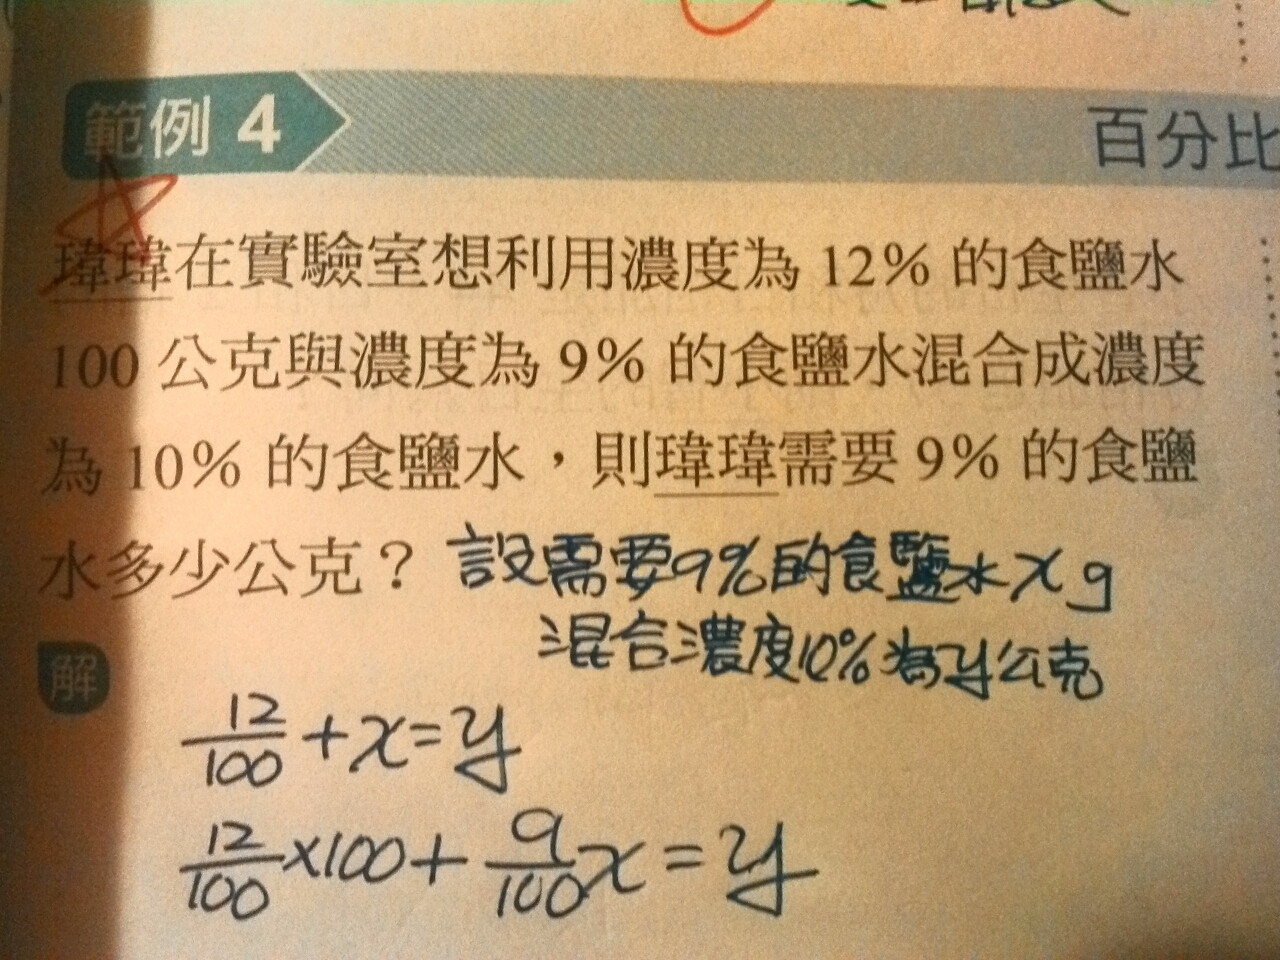 範例 4
百分比
瑋瑋在實驗室想利用濃度為 12% 的食鹽水
100 公克與濃度為 9% 的食鹽水混合成濃度
為 10% 的食鹽水，則瑋瑋需要 9% 的食鹽
水多少公克？ 設需要9%的食鹽水 x g
混合濃度10%為y公克
解
12/100 + x = y
12/100 × 100 + 9/100 x = y